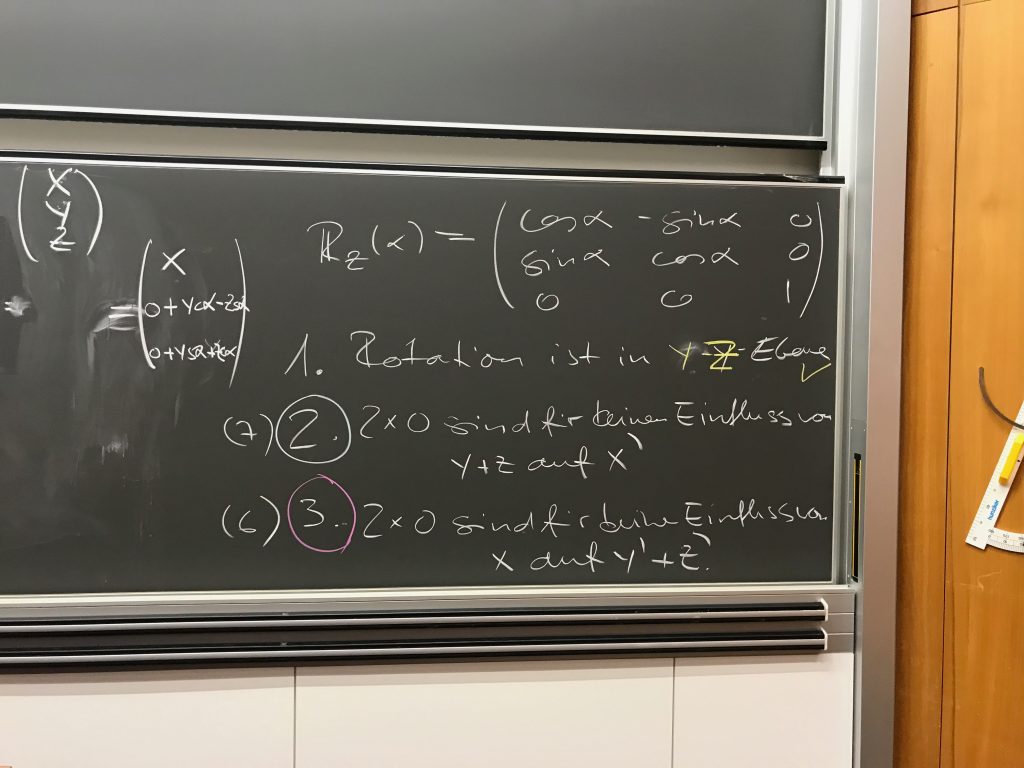 X
Y
Z
X
0+Ycα-Zsα
0+Ysα+Zcα
=
R_Z(α) =
cosα -sinα 0
sinα cosα 0
0 0 1
1. Rotation ist in Y-Z-Ebene
(7) 2. 2×0 sind für keinen Einfluss von
Y+Z auf X'
(6) 3. 2×0 sind für keine Einfluss von
X auf Y'+Z'.